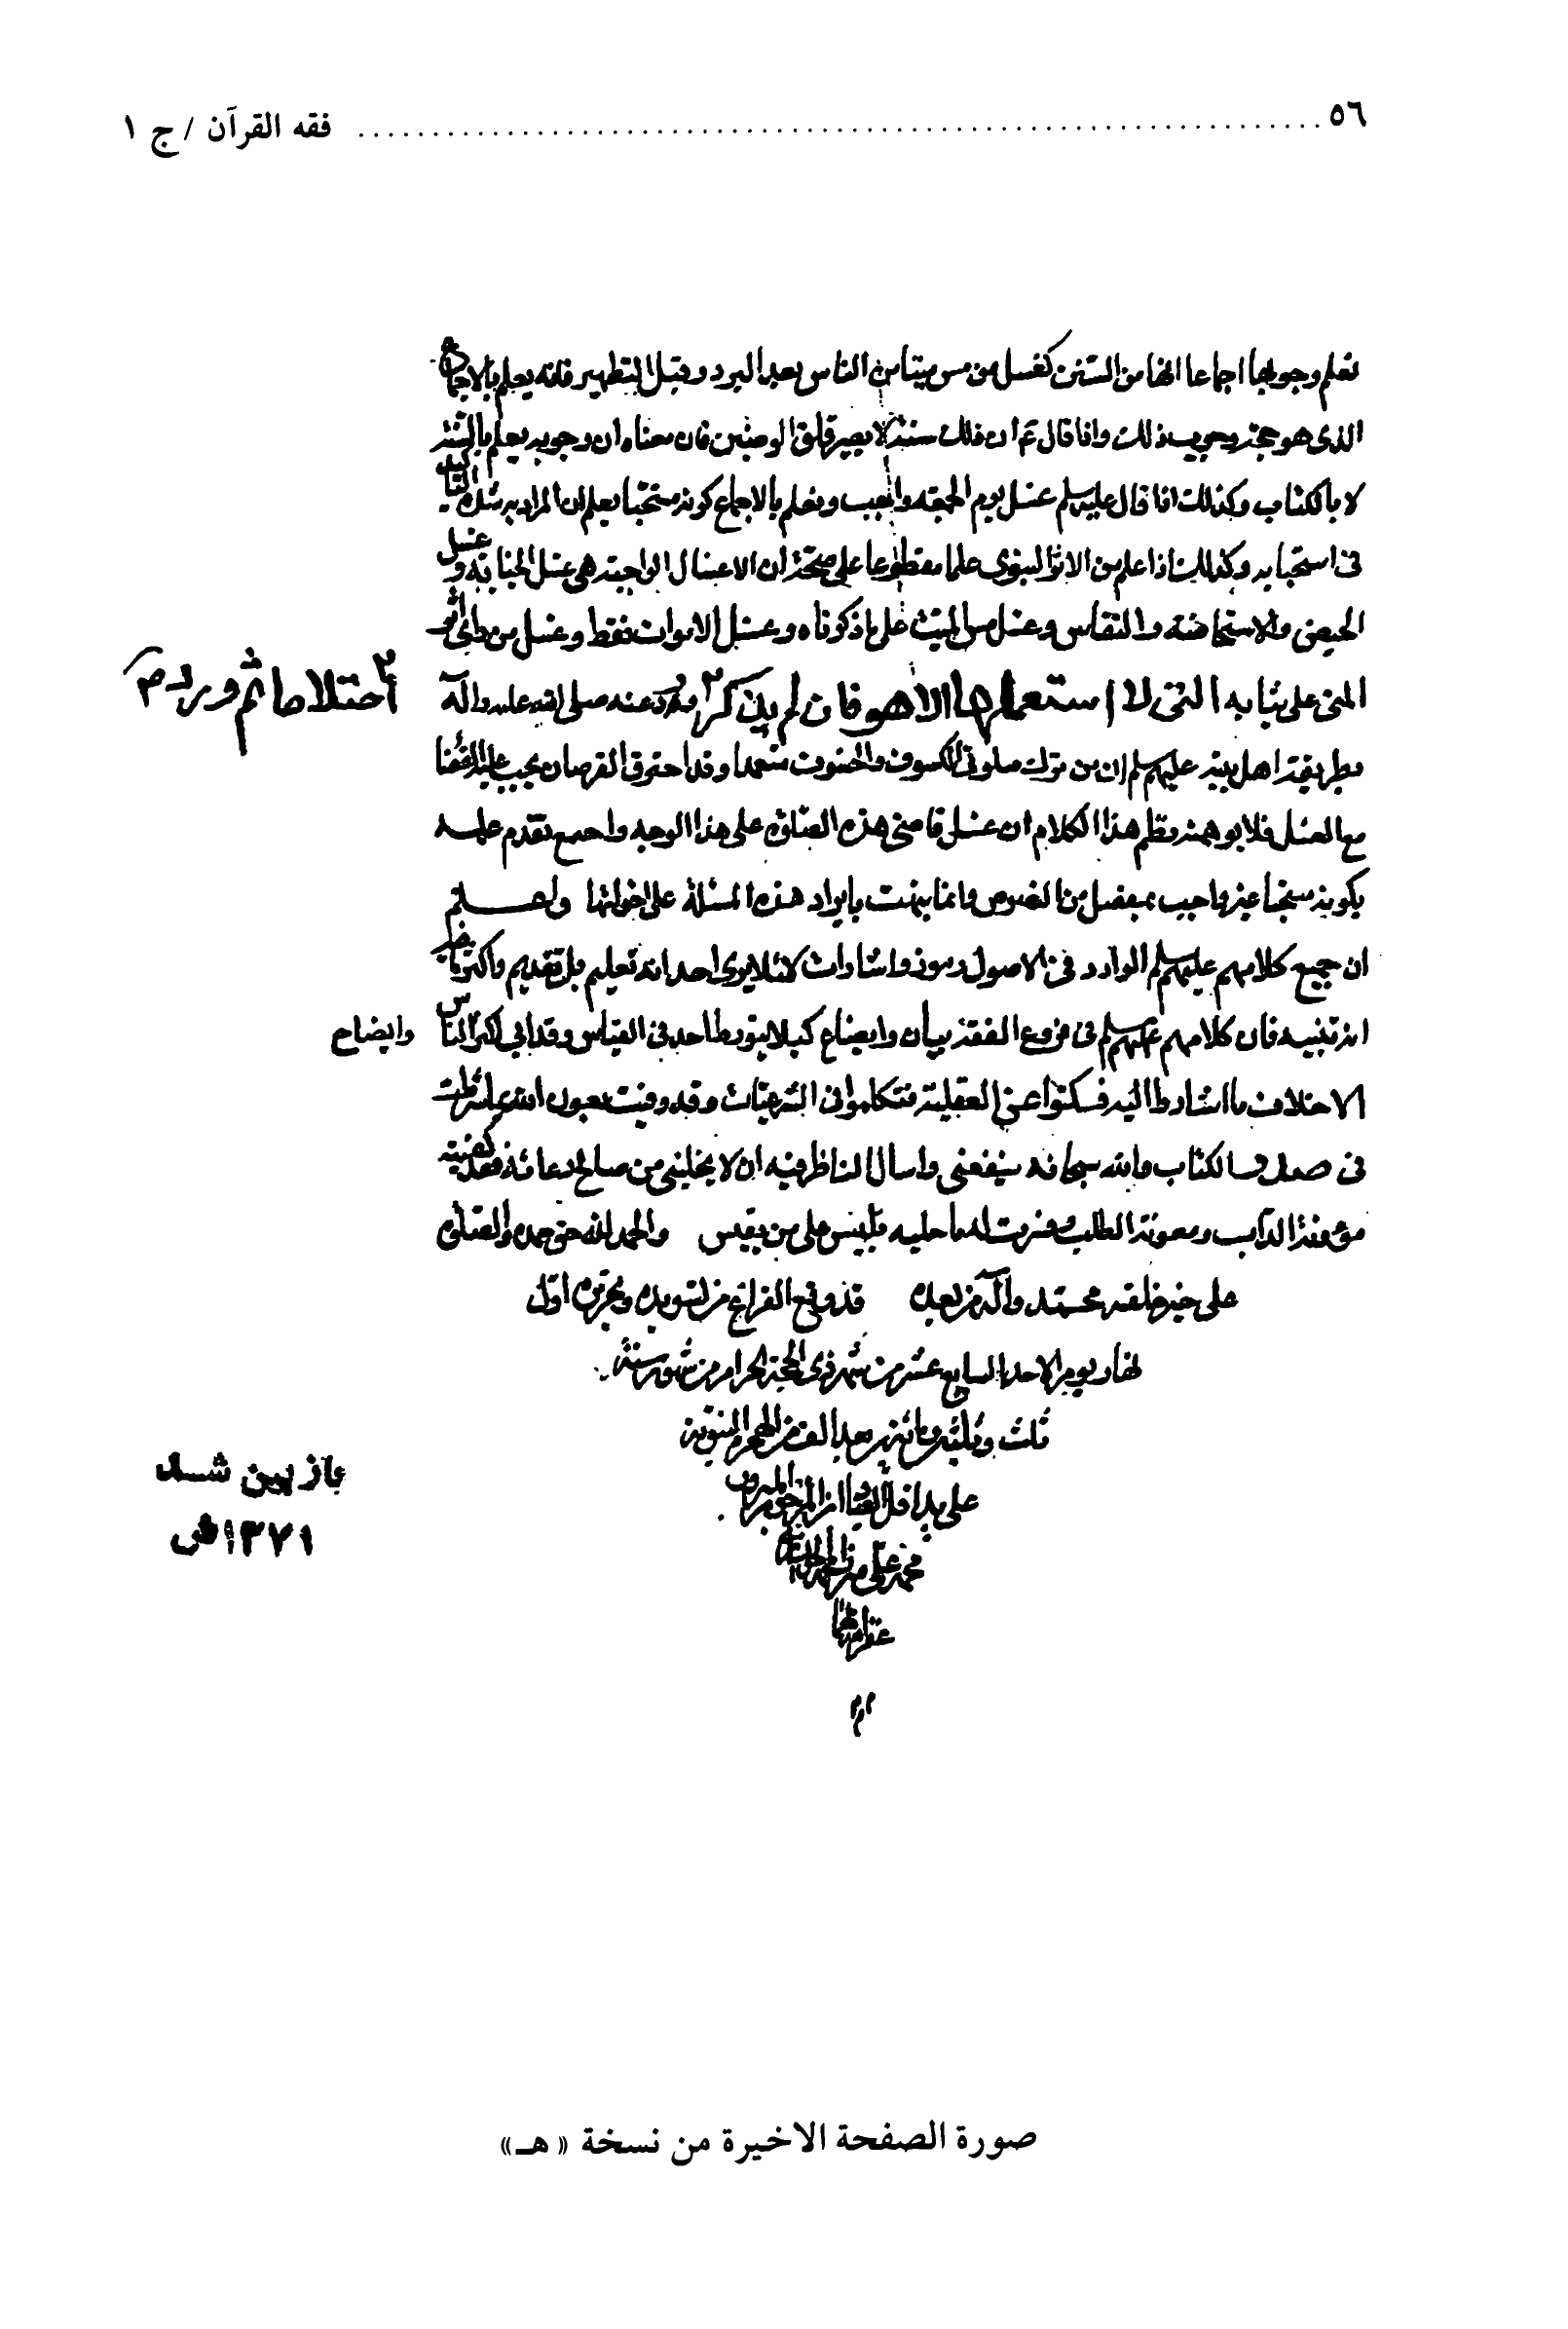 ٥٦ ........ فقه القرآن / ج ١
نعلم وجوبها اجماعا انها من السنن كغسل من مس ميتا من الناس بعد البرد وقبل التطهير فانه يعلم بالاجماع
الذى هو حجة وجوب ذلك واذا قال ان ذلك سنة لا يصير قلق الوضين فان معناه ان وجوبه يعلم بالسنة
لا بالكتاب وكذلك اذا قال عليه السلم غسل يوم الجمعة واجب ونعلم بالاجماع كونه مستحبا يعلم ان المراد به شدة التأكيد
فى استحبابه وكذلك اذا علم من الاثر النبوى علما مقطوعا على صحته ان الاغسال الواجبة هى غسل الجنابة وغسل
الحيض والاستحاضة والنفاس وغسل مس الميت على ما ذكرناه وغسل الاموات فقط وغسل من رأى اثر
المنى على ثيابه التى لا استعملها الا هو فان لم يذكر ٢ وورد عنه صلى الله عليه وآله
٢ احتلاما ثم ورد م
بطريقة اهل بيته عليهم السلم ان من ترك صلوة الكسوف والخسوف متعمدا وقد احترق القرص ان يجب عليه القضا
مع الغسل فلا يوهم نظم هذا الكلام ان غسل قاضى هذه الصلوة على هذا الوجه واجب تقدم علم
بكونه مستحبا غير واجب بمفصل من النصوص وانما نبهت بايراد هذه المسئلة على اخواتها واعلم
ان جميع كلامهم عليهم السلم الوارد فى الاصول رموز واشارات لئلا يرى احد انه تعليم بل تقديم واكثر ما
انه تنبيه فان كلامهم عليهم السلم فى فروع الفقه بيان وايضاح كيلا يتورط احد فى القياس وقد ابى اكثر الناس
وايضاح
الا خلاف ما اشاروا اليه فسكتوا عن العقلية فتكلموا فى الشرعيات وقد وفيت بعون الله بما شرطت
فى صدر الكتاب والله سبحانه ينفعنى واسال الناظر فيه ان لا يخلينى من صالح دعائه فقد كفيته
مؤنة الداب ومعونة الطلب من يقبس والحمد لله حق حمده والصلوة
على خير خلقه محمد وآله من بعده قد وقع الفراغ من تسويده وتحريره اول
نهار يوم الاحد السابع عشر من شهر ذى الحجة الحرام من شهور سنة
ثلث وثلثين ومائتين بعد الالف من الهجرة النبوية
على يد اقل العباد
محمد على
عفى عنهما
م م م
باز بین شد
١٣٧١ ش
صورة الصفحة الاخيرة من نسخة « هـ »